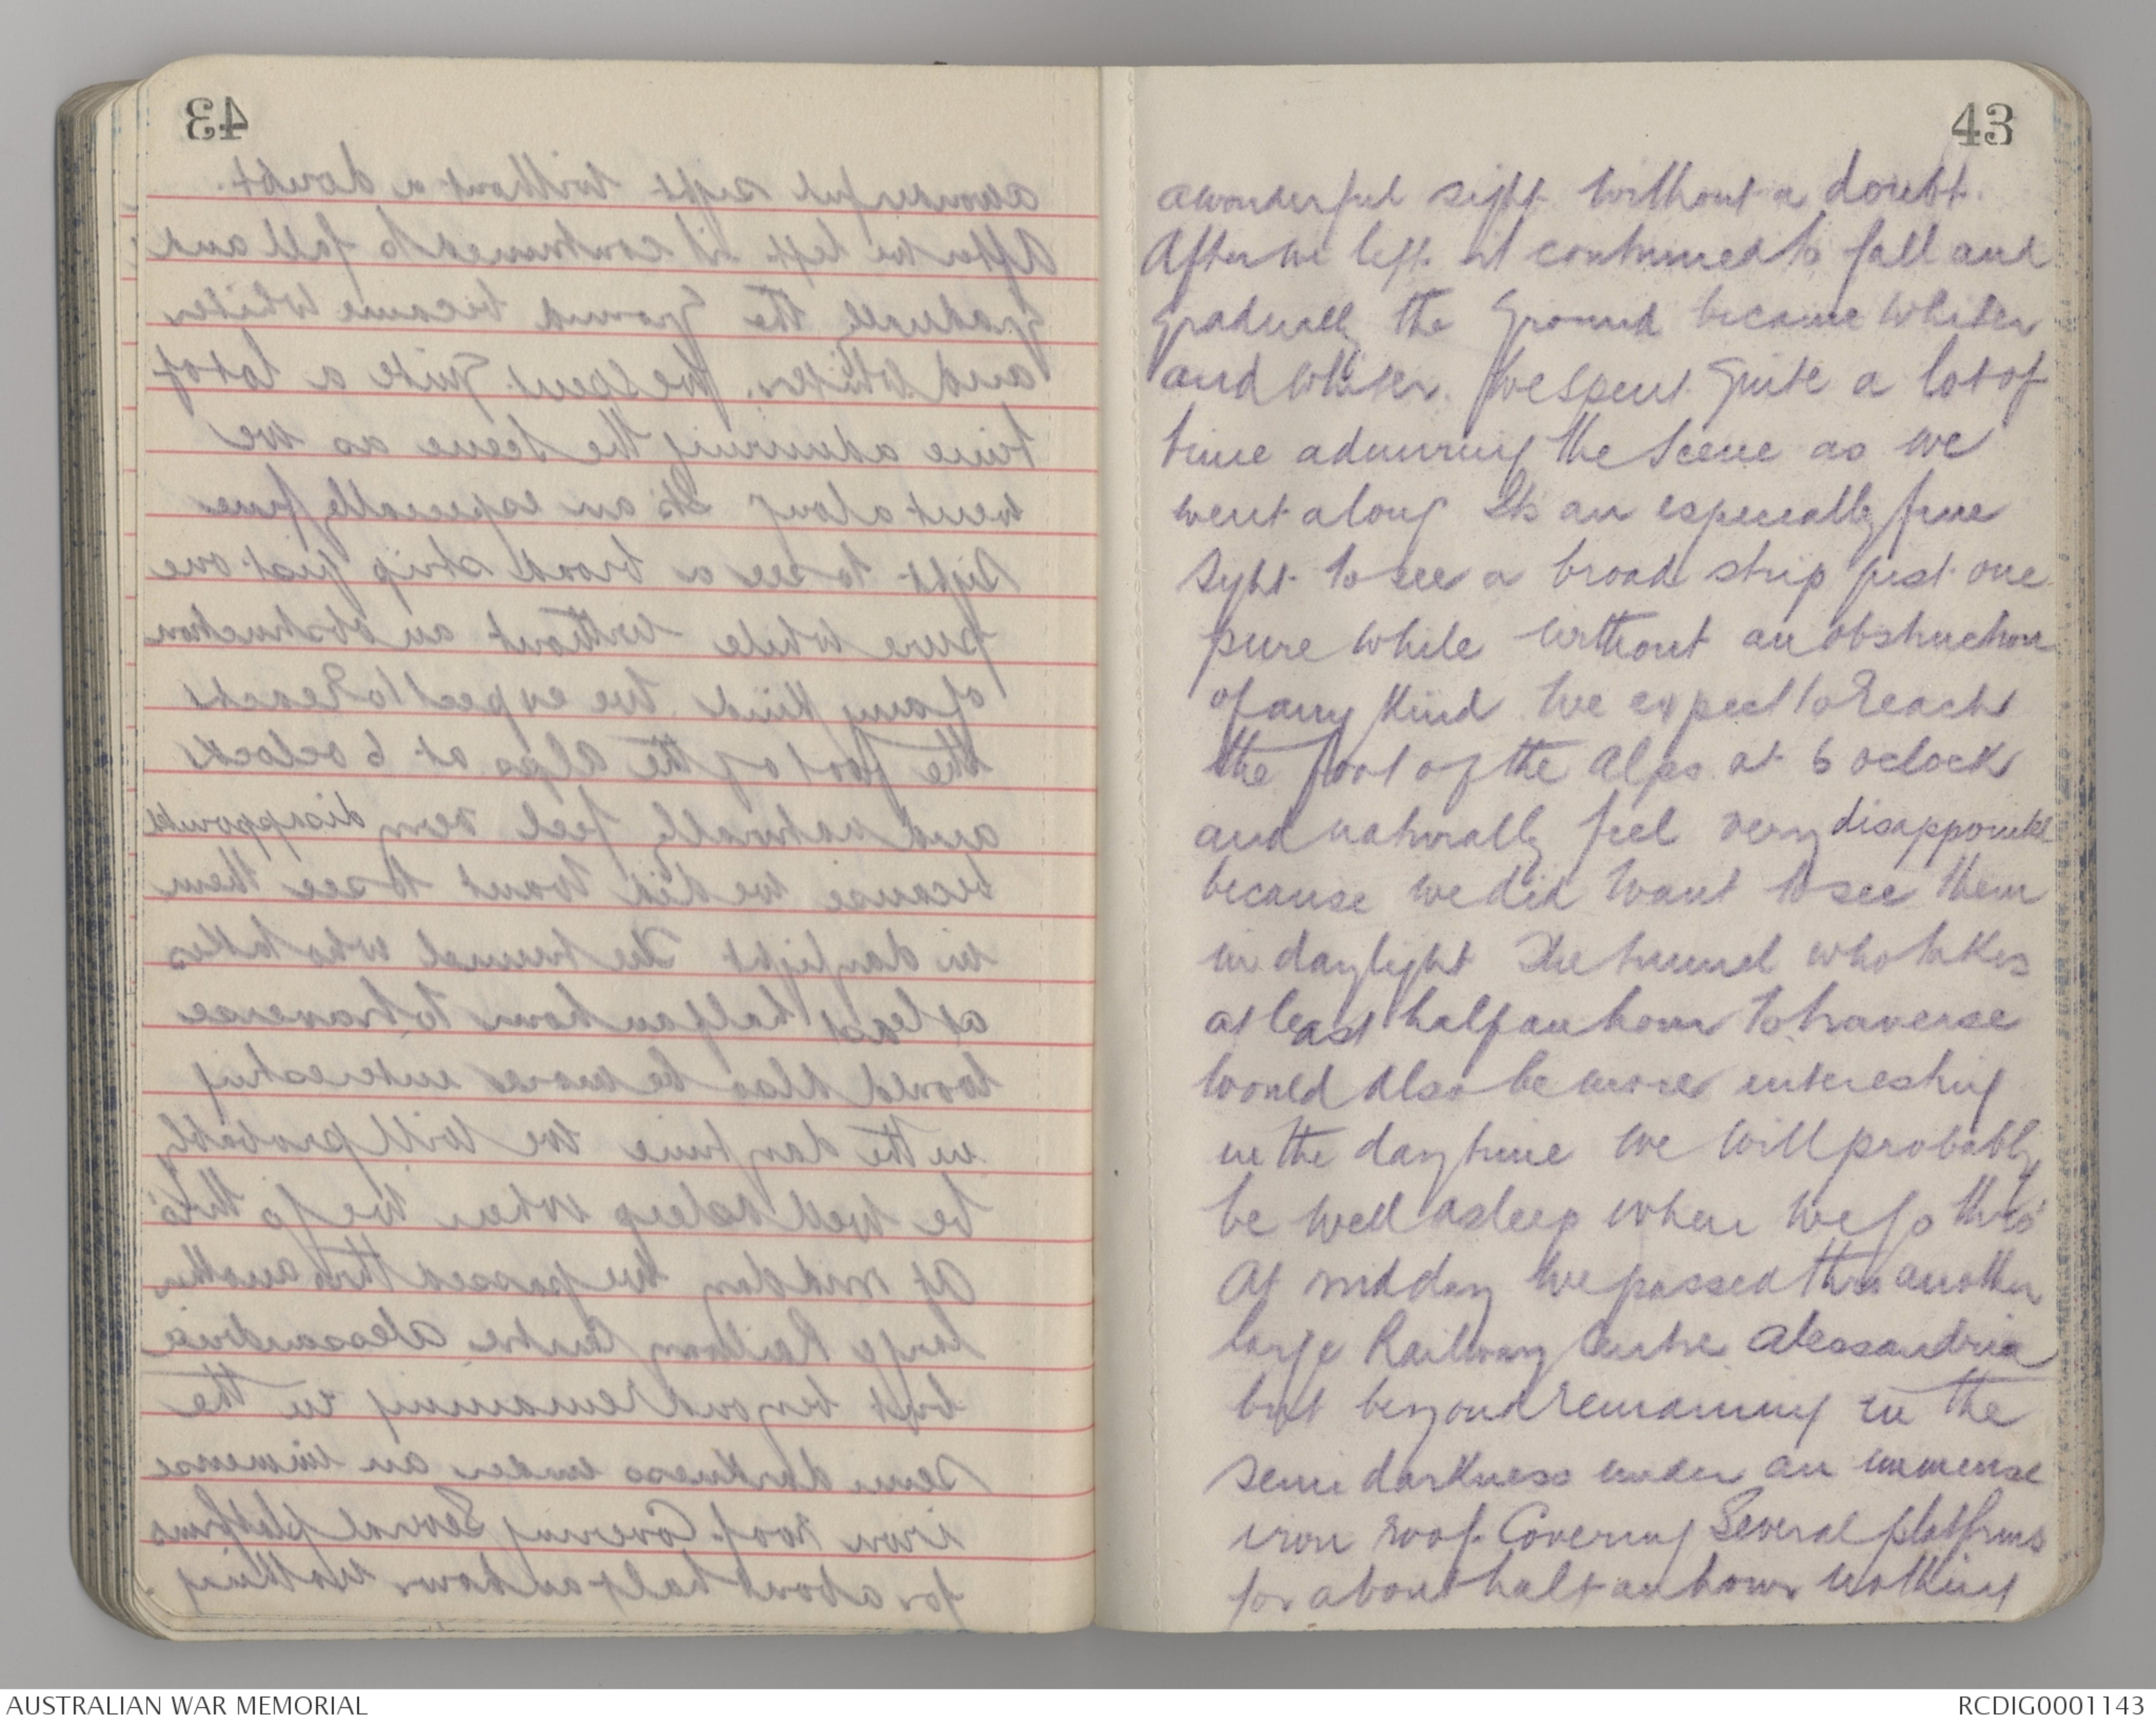 43
a wonderful sight without a doubt.
After we left it continued to fall and
gradually the ground became whiter
and whiter. We spent quite a lot of
time admiring the scene as we
went along Its an especially fine
sight to see a broad strip just one
pure white without an obstruction
of any kind We expect to reach
the foot of the Alps at 6 oclock
and naturally feel very disappointed
because we did want to see them
in daylight The tunnel who takes
at least half an hour to traverse
would also be more interesting
in the daytime We will probably
be well asleep when we go thro'
At midday we passed thro another
large Railway Centre Alessandria
but beyond remaining in the
semi darkness under an immense
iron roof Covering Several platforms
for about half an hour nothing
AUSTRALIAN WAR MEMORIAL
RCDIG0001143